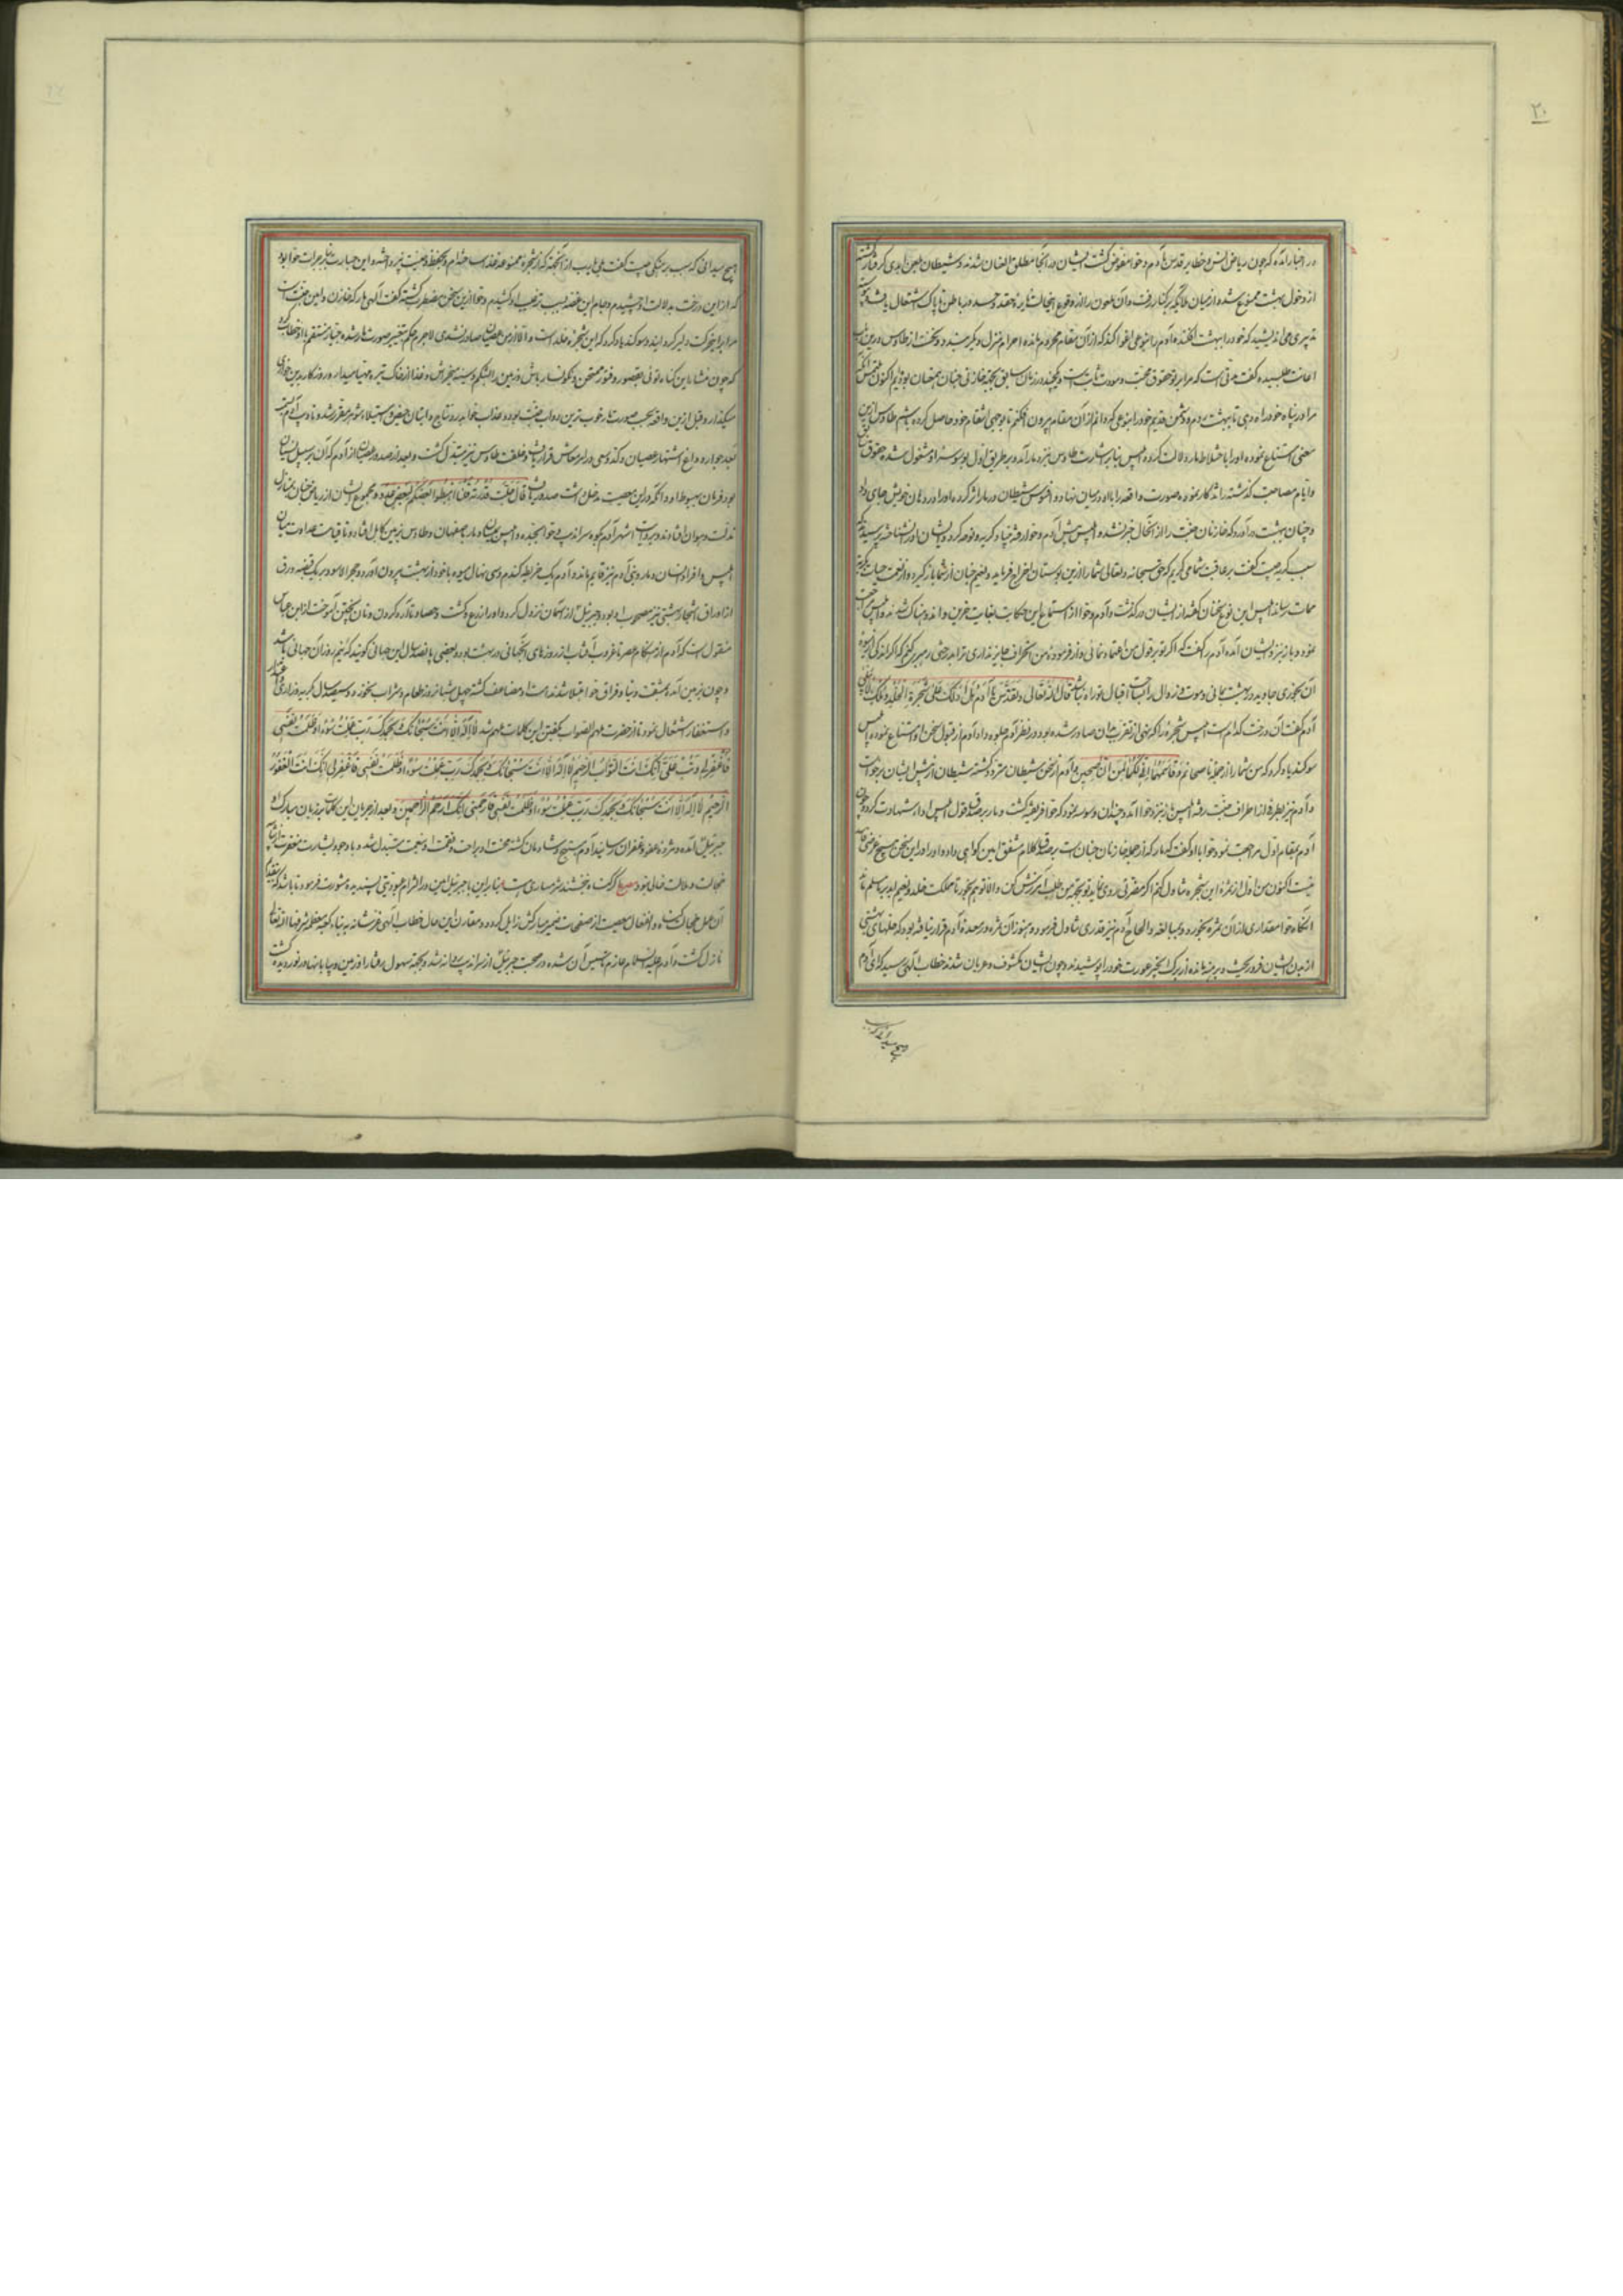 ۲۰
در اخبار آمده که چون ریاض انس و حظایر قدس بآدم و حوا مفوض گشت ایشان در آنجا مطلق العنان شدند و شیطان بلعن ابدی گرفتار گشته
از دخول بهشت ممنوع شده از میان ملائکه بر کنار رفت و آن ملعون را از وقوع اینحالت نایره حقد و حسد در باطن ناپاک اشتعال یافته
تدبیری می اندیشید که خود را ببهشت افکنده آدم را بنوعی اغوا کند که از آن مقام محروم مانده احرام منزل دیگر بندد و نخست از طاوس درین باب
اعانت طلبیده گفت مدتی است که مرا بر تو حقوق محبت و مودت ثابت است
مرا در پناه خود راه دهی تا ببهشت روم و دشمن قدیم خود را بنوعی کردانم از آن مقام بیرون افکنم تا بوجهی انتقام خود حاصل کرده باشم طاوس ازین
معنی استناع نموده او را باختلاط مار دلالت کرد و ابلیس بنابر اشارت طاوس نزد مار آمد و بر طریق اول بوسوسه او مشغول شده حقوق
و ایام مصاحبت گذشته را تذکار نموده صورت واقعه را با او در میان نهاد و افسوس شیطان در مار اثر کرده او را در دهان خویش جای داد
و چنان ببهشت در آورد که خازنان جنت را از آنحال خبر نشد و ابلیس پیش آدم و حوا رفته بنیاد گریه و نوحه کرد و ایشان او را نشناخته پرسیدند که
سبب گریه چیست گفت بر عاقبت شما می گریم که حق سبحانه و تعالی شما را ازین بوستان اخراج فرماید و نعیم جنان از شما باز گیرد و از نعمت حیات
ممات رساند ابلیس این نوع سخنان گفته از ایشان در گذشت و آدم و حوا از استماع این حکایت بغایت حزین و اندوهناک شدند و ابلیس
نمود و باز نزد ایشان آمده آدم را گفت که اگر تو بر قول من اعتماد نمائی و از فرموده من انحراف جایز نداری ترا بدرختی رهبری کنم که اگر اندکی از میوه
آن بخوری جاوید در بهشت بمانی قال الله تعالی و تقدس یا آدم هل ادلک علی شجرة الخلد و ملک لا یبلی
آدم گفت آن درخت کدام است ابلیس شجره را که نهی از تقرب آن صادر شده بود در نظر آدم جلوه داد آدم از قبول سخن او امتناع نموده ابلیس
سوگند یاد کرد که من شما را از جمله ناصحانم و قاسمهما انی لکما لمن الناصحین و آدم از سخن شیطان متردد گشته شیطان از پیش ایشان برخاست
و آدم نیز بطرفی از اطراف جنت رفته ابلیس باز نزد حوا آمد و چندان وسوسه نمود که حوا فریفته گشت و مار بر صدق قول ابلیس اداء شهادت کرد و چون
آدم بمقام اول مراجعت نمود حوا با او گفت که مار که از جمله خازنان جنان است بر صدق کلام مشفق امین گواهی داد و او را در این سخن هیچ غرضی
نیست اکنون من اول از ثمره این شجره تناول کنم اگر مضرتی روی نماید تو بجهة من طلب آمرزش کن و الا تو هم بخور تا مملکت خلد و نعیم ابد بر ما مسلم ماند
آنگاه حوا مقداری از آن ثمره بخورد و بمبالغه و الحاح آدم نیز قدری تناول فرمود و هنوز آن ثمره در معده آدم قرار نیافته بود که حلهای بهشتی
از بدن ایشان فرو ریخت و برهنه مانده از برگ انجیر عورت خود را پوشیدند و چون ایشان مکشوف و عریان شدند خطاب الهی رسید که ای آدم
هیچ میدانی که سبب
هیچ میدانی که سبب برهنگی چیست گفت بلی یا رب از آنجهة که از شجره ممنوعه
که از این درخت بدلالت او چشیدم و جام این غصه بسبب ترغیب او کشیدم و حوا ازین سخن مضطرب گشته گفت الهی مار که خازن و امین جنت است
مرا برین حرکت دلیر گردانید و سوگند یاد کرد که این شجره خلد است و الا از من عصیان صادر نشدی لاجرم حکم تغییر صورت مار شده
که چون منشاء این گناه توئی
میگذار و قبل از این واقعه بحسب صورت مار خوب ترین دواب جنت بود و عذاب حوا بدرد نتایج و امتحان حیض و استیلاء شوهر مقرر شد
بعد جوار و داغ اشتهار عصیان و کد و سعی در امر معاش قرار یافت و خلقت طاوس نیز متبدل گشت و بعد از صدور
بود فرمان بهبوط او و آنکه در این معصیت مدخل داشت صدور یافت قال جلت قدرته قلنا اهبطوا بعضکم لبعض عدو و مجموع ایشان از ریاض جنان بمنازل
مذلت و هوان افتادند و بروایت اشهر آدم بکوه سراندیب و حوا بجده و ابلیس بمیسان و مار باصفهان و طاوس بزمین کابل افتاد و تا قیامت عداوت میان
ابلیس و افراد انسان و مار و بنی آدم نیز قایم مانده و آدم یک خریطه گندم و سی نهال میوه با خود از بهشت بیرون آورد و حجر الاسود و یک قبضه ورق
از اوراق اشجار بهشتی نیز مصحوب او بود و جبرئیل از آسمان نزول کرد و او را زرع و کشت و حصاد و آرد کردن و نان پختن آموخت از ابن عباس
منقول است که آدم از هنگام عصر تا غروب آفتاب از روزهای آنجهانی در بهشت بود و بعضی پانصد سال این جهانی گویند که نیم روز آن جهانی باشد
و چون بزمین آمد بمشقت دنیا و فراق حوا مبتلا شد ندامت او مضاعف گشته چهل شبانروز طعام و شراب نخورد و سیصد سال بگریه و زاری
و استغفار اشتغال نمود تا از حضرت ملهم الصواب بتلقین این کلمات ملهم شد لا اله الا انت سبحانک و بحمدک رب عملت سوء او ظلمت نفسی
فاغفرلی و تب علی انک انت التواب الرحیم لا اله الا انت سبحانک و بحمدک رب عملت سوء او ظلمت نفسی فاغفر لی انک انت الغفور
الرحیم لا اله الا انت سبحانک و بحمدک رب عملت سوء او ظلمت نفسی فارحمنی انک ارحم الراحمین و بعد از جریان این کلمات بر زبان مبارک او
جبرئیل آمده و مژده عفو و غفران رسانید آدم مبتهج و شادمان گشته محنت او براحت و نقمت او بنعمت متبدل شد و با وجود بشارت مغفرت
خجالت و ملالت خالی نبود مصرع گر گناه بخشند شرمساری هست بنابر این با جبرئیل امین در التزام عبودیتی پسندیده مشورت فرمود تا باشد که
آن عمل خجالت گناه و انفعال معصیت از صفحات ضمیر مبارکش زایل گردد و مقارن این حال خطاب الهی فرشتگانه به بناء کعبه معظمه شرفها الله تعالی
نازل گشت و آدم علیه السلام عازم تاسیس آن شده در صحبت جبرئیل از سراندیب روانه شد و بجهة سهولت رفتار او زمین و بیابانها در نوردیده گشت